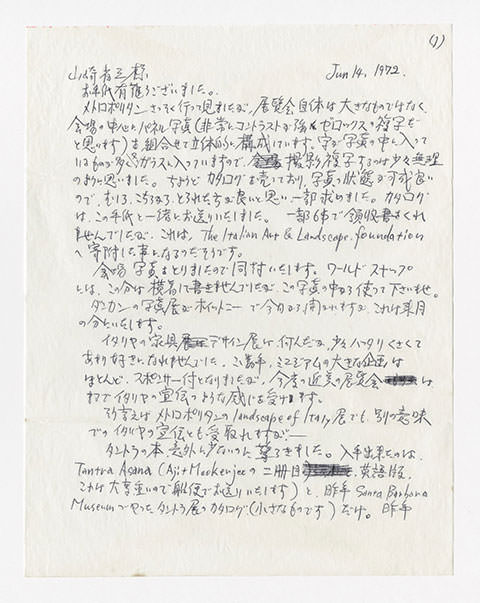 (1)
山崎省三様 Jun 14, 1972.
お手紙有難うございました。
メトロポリタン さっそく行って見ましたが、展覧会自体は大きなものではなく、
会場の中心にパネル写真(非常にコントラストが強くゼロックスの複写だ
と思います)を組合せて立体的に構成しています。字が写真の中に入って
いるものが多くガラスに入っていますので、撮影複写するのは少々無理
のように思いました。ちょうどカタログを売っており、写真の状態が可成良い
ので、むしろ、こちらからとれた方が良いと思い、一部求めました。カタログ
は、この手紙と一緒にお送りいたしました。一部6$で領収書をくれ
ませんでしたが、これは、The Italian Art & Landscape foundation
へ寄附した事になるのだそうです。
会場写真をとりましたので同封いたします。ワールドスナップ
とは、この分は横着して書きませんでしたが、この写真の中から使って下さいませ。
ダンカンの写真展がホイットニーで今日から開かれますが、これは来月
の分にいたします。
イタリヤの家具デザイン展は何んだか、少々ハッタリくさくて
あまり好きになれませんでした。ミュゼアムの大きな企画は
ほとんど、スポンサー付となりましたが、今度の近美の展覧会は
まるでイタリヤの宣伝のような感じを受けます。
メトロポリタンの landscape of Italy 展でも、別の意味
でのイタリヤの宣伝とも受取れますが―
タントラの本 意外に少ないのに驚ろきました。入手出来たのは、
Tantra Asana (Ajit Mookerjee の二冊目 英語版、
これは大変重いので船便でお送りいたします)と、昨年 Santa Barbara
Museum でやったタントラ展のカタログ(小さなものです)だけ。昨年